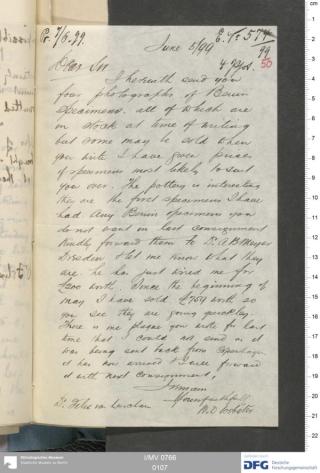 Pr. 7/6.99.
E. No 577/99
June 5/99
4 Phot.
50
Dear Sir
I herewith send you
four photographs of Benin
specimens. all of which are
in stock at time of writing
but some may be sold when
you write I have prices
of specimens most likely to suit
you over. The pottery is interesting
they are the first specimens I have
had Any Benin specimens you
do not want in last consignment
kindly forward them to Dr. A B Meyer
Dresden & let me know what they
are. he has just wired me for
£200 worth. Since the beginning of
May I have sold £759 worth so
you see they are going quickly.
There is one plaque you wrote for last
time that I could not send as it
was being sent back from Copenhagen
it has now arrived & I will forward
it with next consignment,
I remain
Yours faithfully
W. D Webster
Dr. Felix von Luschan
Ethnologisches Museum
Staatliche Museen zu Berlin
I/MV 0766
0107
gefördert durch
DFG Deutsche
Forschungsgemeinschaft
cm
1
2
3
4
5
6
7
8
9
10
11
12
13
14
15
16
17
18
19
20
21
22